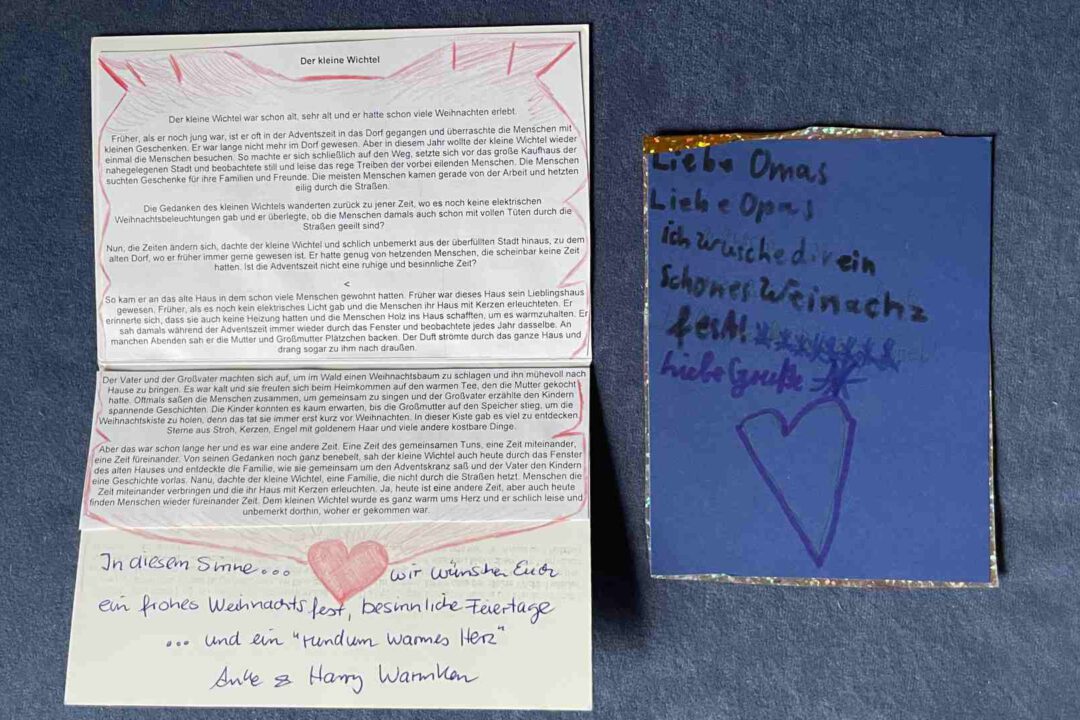 Der kleine Wichtel
Der kleine Wichtel war schon alt, sehr alt und er hatte schon viele Weihnachten erlebt.
Früher, als er noch jung war, ist er oft in der Adventszeit in das Dorf gegangen und überraschte die Menschen mit
kleinen Geschenken. Er war lange nicht mehr im Dorf gewesen. Aber in diesem Jahr wollte der kleine Wichtel wieder
einmal die Menschen besuchen. So machte er sich schließlich auf den Weg, setzte sich vor das große Kaufhaus der
nahegelegenen Stadt und beobachtete still und leise das rege Treiben der vorbei eilenden Menschen. Die Menschen
suchten Geschenke für ihre Familien und Freunde. Die meisten Menschen kamen gerade von der Arbeit und hetzten
eilig durch die Straßen.
Die Gedanken des kleinen Wichtels wanderten zurück zu jener Zeit, wo es noch keine elektrischen
Weihnachtsbeleuchtungen gab und er überlegte, ob die Menschen damals auch schon mit vollen Tüten durch die
Straßen geeilt sind?
Nun, die Zeiten ändern sich, dachte der kleine Wichtel und schlich unbemerkt aus der überfüllten Stadt hinaus, zu dem
alten Dorf, wo er früher immer gerne gewesen ist. Er hatte genug von hetzenden Menschen, die scheinbar keine Zeit
hatten. Ist die Adventszeit nicht eine ruhige und besinnliche Zeit?
<
So kam er an das alte Haus in dem schon viele Menschen gewohnt hatten. Früher war dieses Haus sein Lieblingshaus
gewesen. Früher, als es noch kein elektrisches Licht gab und die Menschen ihr Haus mit Kerzen erleuchteten. Er
erinnerte sich, dass sie auch keine Heizung hatten und die Menschen Holz ins Haus schafften, um es warmzuhalten. Er
sah damals während der Adventszeit immer wieder durch das Fenster und beobachtete jedes Jahr dasselbe. An
manchen Abenden sah er die Mutter und Großmutter Plätzchen backen. Der Duft strömte durch das ganze Haus und
drang sogar zu ihm nach draußen.
Der Vater und der Großvater machten sich auf, um im Wald einen Weihnachtsbaum zu schlagen und ihn mühevoll nach
Hause zu bringen. Es war kalt und sie freuten sich beim Heimkommen auf den warmen Tee, den die Mutter gekocht
hatte. Oftmals saßen die Menschen zusammen, um gemeinsam zu singen und der Großvater erzählte den Kindern
spannende Geschichten. Die Kinder konnten es kaum erwarten, bis die Großmutter auf den Speicher stieg, um die
Weihnachtskiste zu holen, denn das tat sie immer erst kurz vor Weihnachten. In dieser Kiste gab es viel zu entdecken.
Sterne aus Stroh, Kerzen, Engel mit goldenem Haar und viele andere kostbare Dinge.
Aber das war schon lange her und es war eine andere Zeit. Eine Zeit des gemeinsamen Tuns, eine Zeit miteinander,
eine Zeit füreinander. Von seinen Gedanken noch ganz benebelt, sah der kleine Wichtel auch heute durch das Fenster
des alten Hauses und entdeckte die Familie, wie sie gemeinsam um den Adventskranz saß und der Vater den Kindern
eine Geschichte vorlas. Nanu, dachte der kleine Wichtel, eine Familie, die nicht durch die Straßen hetzt. Menschen die
Zeit miteinander verbringen und die ihr Haus mit Kerzen erleuchten. Ja, heute ist eine andere Zeit, aber auch heute
finden Menschen wieder füreinander Zeit. Dem kleinen Wichtel wurde es ganz warm ums Herz und er schlich leise und
unbemerkt dorthin, woher er gekommen war.
In diesem Sinne... wir wünschen Euch
ein frohes Weihnachtsfest, besinnliche Feiertage
... und ein "rundum warmes Herz"
Anke & Harry Warmken
Liebe Omas
Liebe Opas
ich wüsche dir ein
schönes Weinachz
fest!
Liebe Grüße